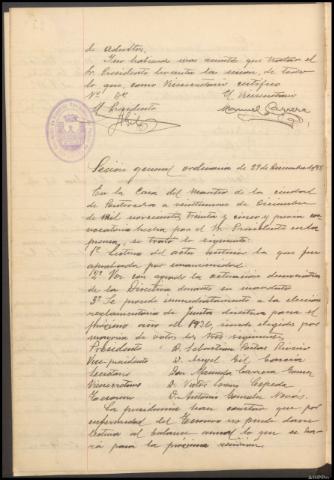 de adultos.
Y no habiendo mas asuntos que tratar el
Sr. Presidente levanta la sesion, de todo
lo que, como Vicesecretario certifico
Vº Bº El Vicesecretario
El Presidente Manuel Carrera
Sesion general ordinaria de 29 de Diciembre de 1935
En la Casa del Maestro de la ciudad
de Pontevedra a veintinueve de Diciembre
de mil novecientos treinta y cinco y previa con
vocatoria hecha por el Sr. Presidente en la
prensa, se trató lo siguiente:
1º Lectura del acta anterior la que fue
aprobada por unanimidad.
2º Ver con agrado la actuación
de la Directiva durante su mandato
3º Se procede inmediatamente a la eleccion
reglamentaria de Junta directiva para el
próximo año de 1936, siendo elegidos por
mayoria de votos los Sres siguientes:
Presidente D. Sebastian
Vice-presidente D. Angel Gil
Secretario Don Manuel Carrera
Vicesecretario D. Victor Cepeda
Tesorero D. Antonio Gonzalez
La presidencia hace constar que por
enfermedad del Tesorero no puede darse
lectura al balance anual lo que se ha
rá para la próxima reunion.